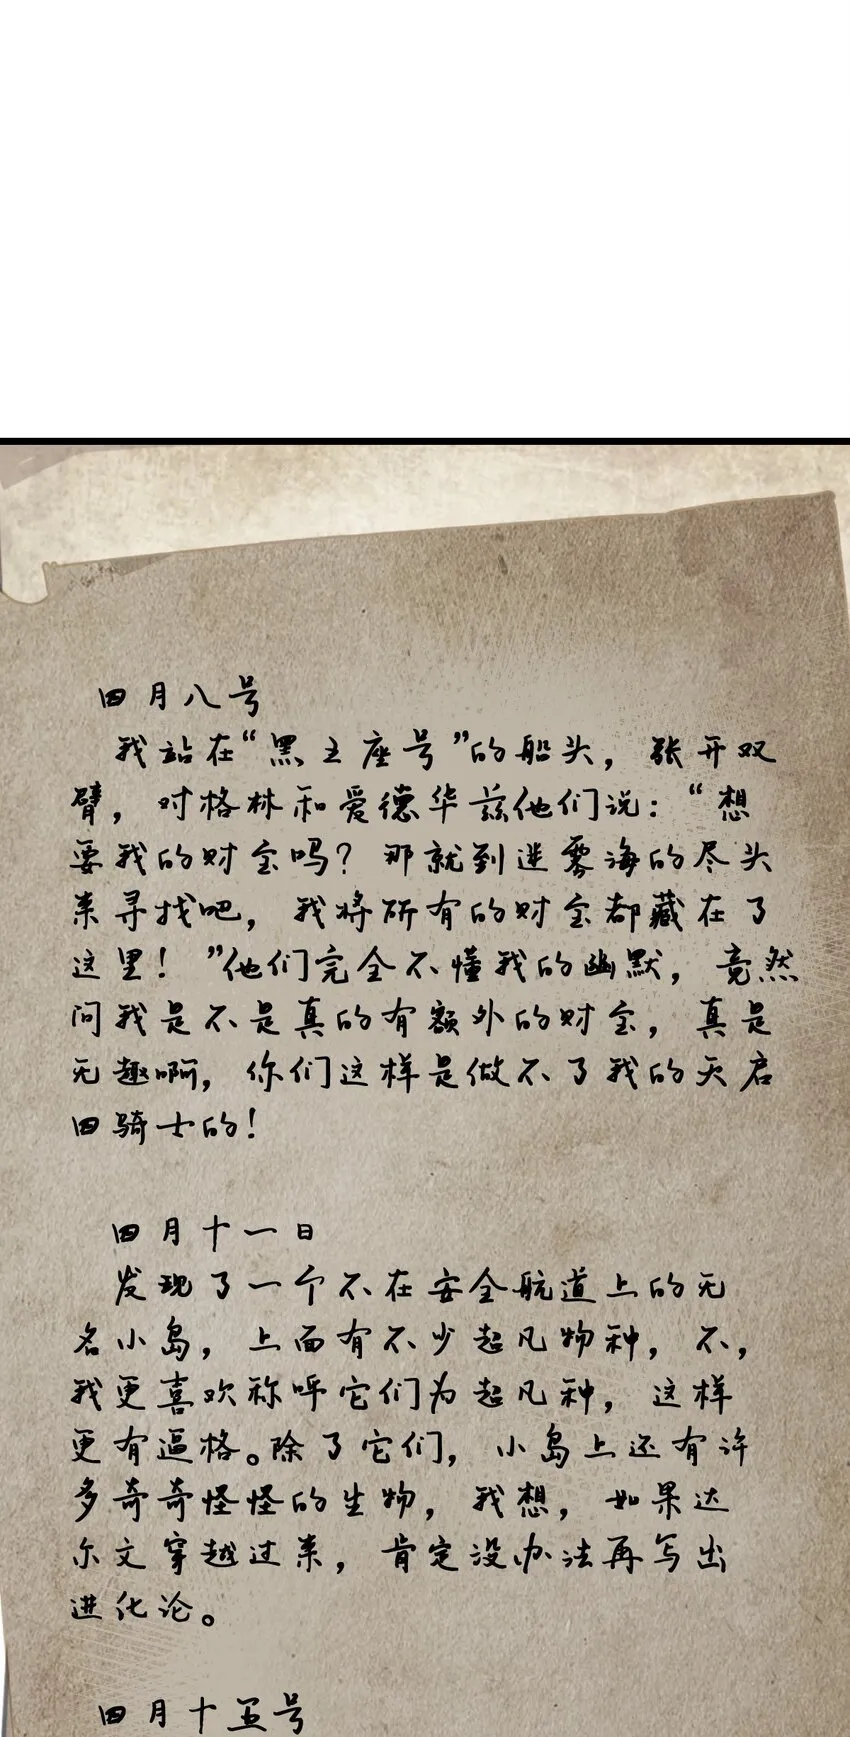 四月八号
我站在“黑王座号”的船头，张开双
臂，对格林和爱德华兹他们说：“想
要我的财宝吗？那就到迷雾海的尽头
来寻找吧，我将所有的财宝都藏在了
这里！”他们完全不懂我的幽默，竟然
问我是不是真的有额外的财宝，真是
无趣啊，你们这样是做不了我的天启
四骑士的！
四月十一日
发现了一个不在安全航道上的无
名小岛，上面有不少超凡物种，不，
我更喜欢称呼它们为超凡种，这样
更有逼格。除了它们，小岛上还有许
多奇奇怪怪的生物，我想，如果达
尔文穿越过来，肯定没办法再写出
进化论。
四月十五号